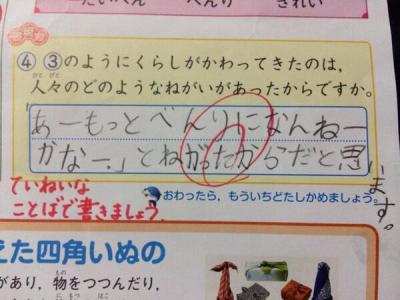 たいへん べんり きれい
④ ③のようにくらしがかわってきたのは、
人々のどのようなねがいがあったからですか。
「あーもっとべんりになんねー
かなー。」とねがったからだと思い
ます。
ていねいな
ことばで書きましょう
おわったら、もういちどたしかめましょう。
えた四角いぬの
があり、物をつつんだり、